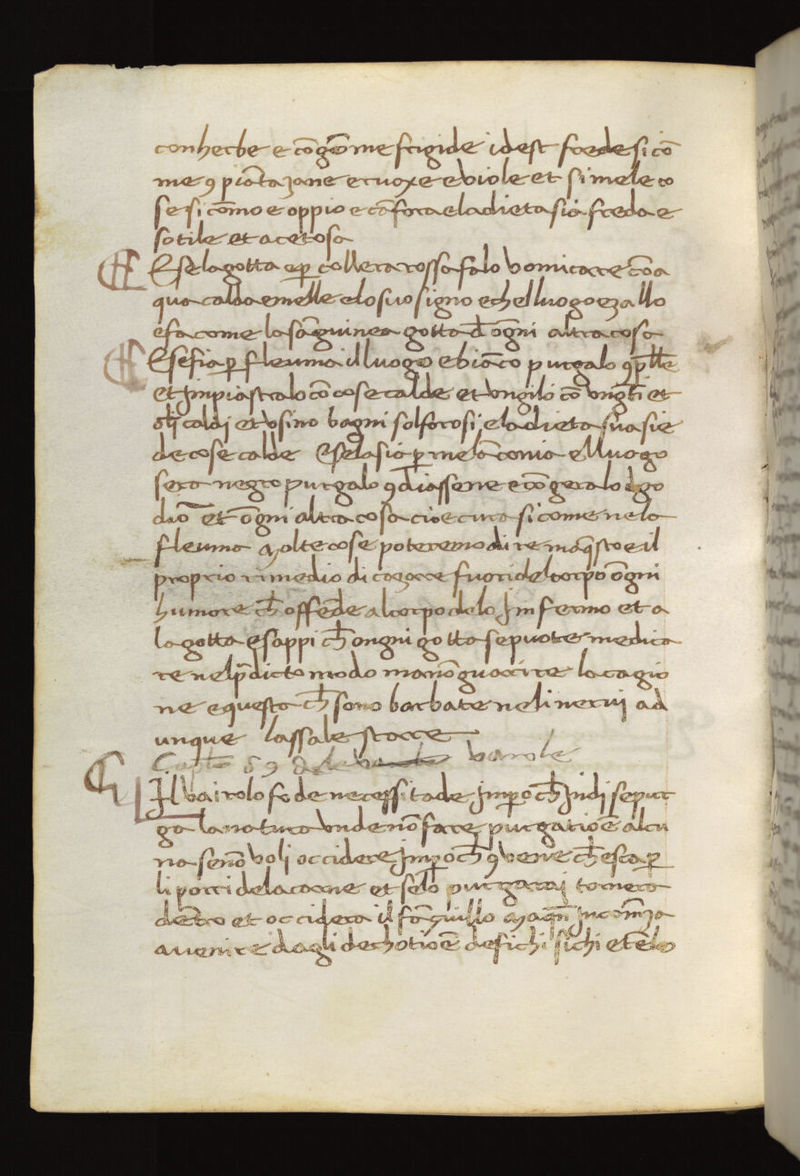 con herbe e cō gōme frigide idest frede si cō
me 9 piātazane e ruoxe e viole et simele co
se si cōmo e oppio e cāfora e la dieta sia freda e
sotile et acetosa
E se la gotta e p̄ collera rossa falo vomitare cō a
qua calda e melle e lo suo signo e che l luogo e zallo
e fa come la sāguinea gotta d̄ ogni altra cosa
E se fia p̄ fleuma il luogo e biāco purgalo
et Impiastralo cō cose calde et ungilo cō et
caldi et usino bagni solforosi e la dieta sua sie
de cose calde E se la sia p̄ melācomia el luogo
sera negro purgalo 9 diassene e cō gera lo
et ōgni altra cosa cioe cura si come ne la
fleuma Molte cose poteremo dire ma q̄sto e il
proprio rimedio di cazare fuori del corpo ōgni
humore ch̄ offēde al corpo de lo Imfermo et a
la gotta E sappi ch̄ ongni gotta se puote medica
re nel p̄dicto modo ma nō guarire la cagio
ne e questo ch̄ sono barbate neli nervi ad
unque lassale stare
59 de varole
Il vairolo fo de necessitade Impo ch̄ Indi se pur
ga la natura unde nō fare purgatiōe alcu
na se nō voli occidere Impo ch̄ 9vene ch̄ esca p̄
li porri de la carne et se lo purgarai tornera
dētro et occidera il fāguillo Ma q̄n Incomēza
a venire dagli dechotiōe de fichi sichi et